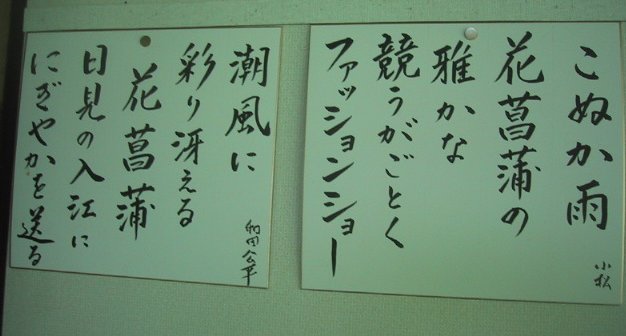 こぬか雨
花菖蒲の
雅かな
競うがごとく
ファッションショー
小松
潮風に
彩り冴える
花菖蒲
日見の入江に
にぎやかを送る
和田公平